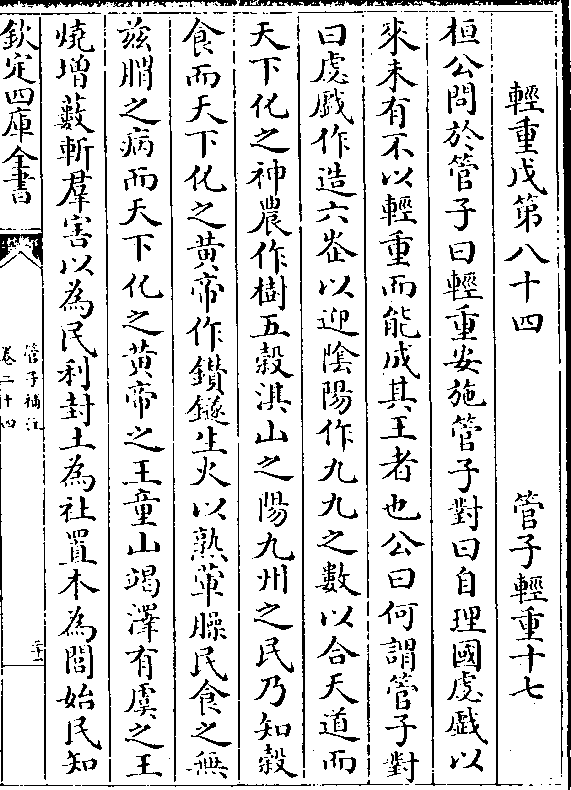 輕重戊第八十四　管子輕重十七
桓公問於管子曰輕重安施管子對曰自理國虙戲以
來未有不以輕重而能成其王者也公曰何謂管子對
曰虙戲作造六峜以迎陰陽作九九之數以合天道而
天下化之神農作樹五穀淇山之陽九州之民乃知穀
食而天下化之黃帝作鑽鐩生火以熟葷臊民食之無
茲胃之病而天下化之黃帝之王童山竭澤有虞之王
燒增藪斬羣害以為民利封土為社置木為閭始民知
欽定四庫全書
管子補注
卷二十四